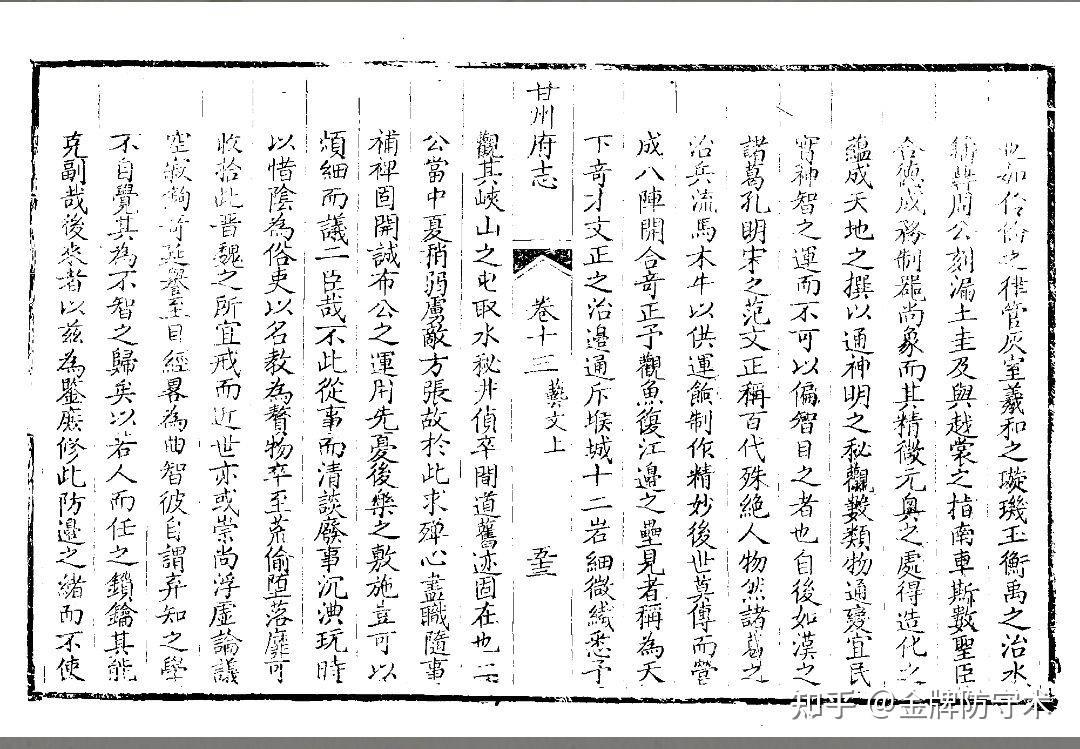 也如伶倫之律管灰室羲和之璇璣玉衡禹之治水
疇典周公刻漏土圭及與越裳之指南車斯數聖臣
合德成務制器尚象而其精微元奧之處得造化之
蘊成天地之撰以通神明之秘觀數類物通變宜民
實神智之運而不可以偏智目之者也自後如漢之
諸葛孔明宋之范文正稱百代殊絕人物然諸葛之
治兵流馬木牛以供運餉制作精妙後世莫傳而營
成八陣開合奇正予觀魚復江邊之壘見者稱為天
下奇才文正之治邊通斥堠城十二岩細微織悉予
甘州府志 卷十三 藝文上 五三
觀其峽山之屯取水秘井偵卒間道舊迹固在也二
公當中夏稍弱虜敵方張故於此求殫心盡職隨事
補裨固開誠布公之運用先憂後樂之敷施豈可以
煩細而議二臣哉不此從事而清談廢事沉湎玩時
以惜陰為俗吏以名教為贅物卒至荒偷墮落靡可
收拾此晉魏之所宜戒而近世亦或崇尚浮虛論議
空寂詭奇延譽至目經畧為曲智彼自謂弃知之學
不自覺其為不智之歸矣以若人而任之鎖鑰其能
克副哉後來者以茲為鑒庶修此防邊之緒而不使
知乎 @金牌防守术